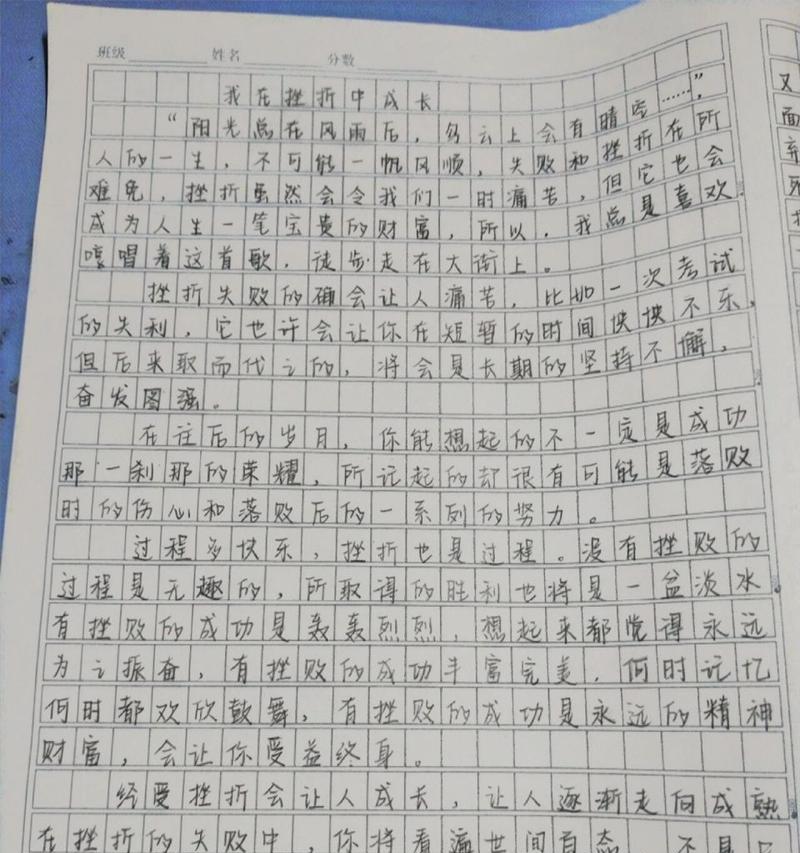 班级 姓名 分数
我在挫折中成长
“阳光总在风雨后，乌云上会有晴空……”，
人的一生，不可能一帆风顺，失败和挫折在所
难免，挫折虽然会令我们一时痛苦，但它也会
成为人生一笔宝贵的财富，所以，我总是喜欢
哼唱着这首歌，徒步走在大街上。
挫折失败的确会让人痛苦，比如一次考试
的失利，它也许会让你在短暂的时间怏怏不乐，
但后来取而代之的，将会是长期的坚持不懈，
奋发图强。
在往后的岁月，你能想起的不一定是成功
那一刹那的荣耀，所记起的却很有可能是落败
时的伤心和落败后的一系列的努力。
过程多快乐，挫折也是过程。没有挫败的
过程是无趣的，所取得的胜利也将是一盆淡水
有挫败的成功是轰轰烈烈，想起来都觉得永远
为之振奋，有挫败的成功丰富完美，何时记忆
何时都欢欣鼓舞，有挫败的成功是永远的精神
财富，会让你受益终身。
经受挫折会让人成长，让人逐渐走向成熟
在挫折的失败中，你将看遍世间百态 不是
又
面